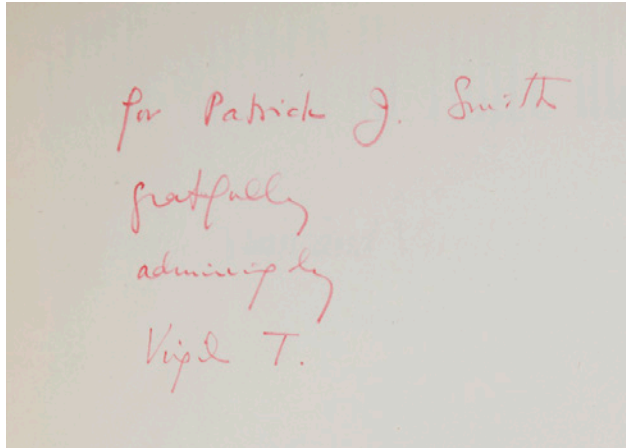 for Patrick J. Smith
gratefully
admiringly
Virgil T.